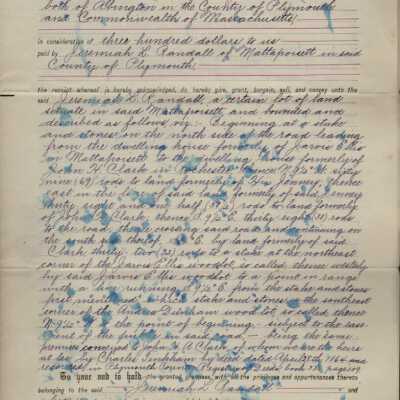 both of Abington in the County of Plymouth
and Commonwealth of Massachusetts
in consideration of three hundred dollars to us
paid by Jeremiah L. Randall of Mattapoisett in said
County of Plymouth
the receipt whereof is hereby acknowledged, do hereby give, grant, bargain, sell, and convey unto the
said Jeremiah L. Randall, a certain lot of land
situate in said Mattapoisett, and bounded and
described as follows, viz: Beginning at stake
and stones on the north side of the road leading
from the dwelling house formerly of Jarvis Ellis
in Mattapoisett to the dwelling house formerly of
John H. Clark in Rochester, thence N. 9½° W. sixty
nine (69) rods to land formerly of thence
east in the line of said land formerly of said
thirty eight and one half (38½) rods to land formerly
of John H. Clark, thence S. 9½° E. thirty eight rods
to the road, thence crossing said road and continuing on
the south side thereof E. by land formerly of said
Clark thirty two rods to a stake at the northeast
corner of the Jarvis Ellis woodlot so called, thence westerly
by said Jarvis Ellis woodlot to a point on range
with a line running S. 9½° E. from the stake and stones
first mentioned which stake and stones the southeast
corner of the Dexter woodlot so called, thence
N. 9½° W. to the point of beginning. Subject to the ease
ment of the public in said road. being the same
premises conveyed to John H. Clark of whom we are the heirs
at law by Charles Tinkham by deed dated April 1864 and
recorded in Plymouth County Registry of Deeds book page 109
To have and to hold the granted premises, with all the privileges and appurtenances thereto
belonging to the said Jeremiah L. Randall and